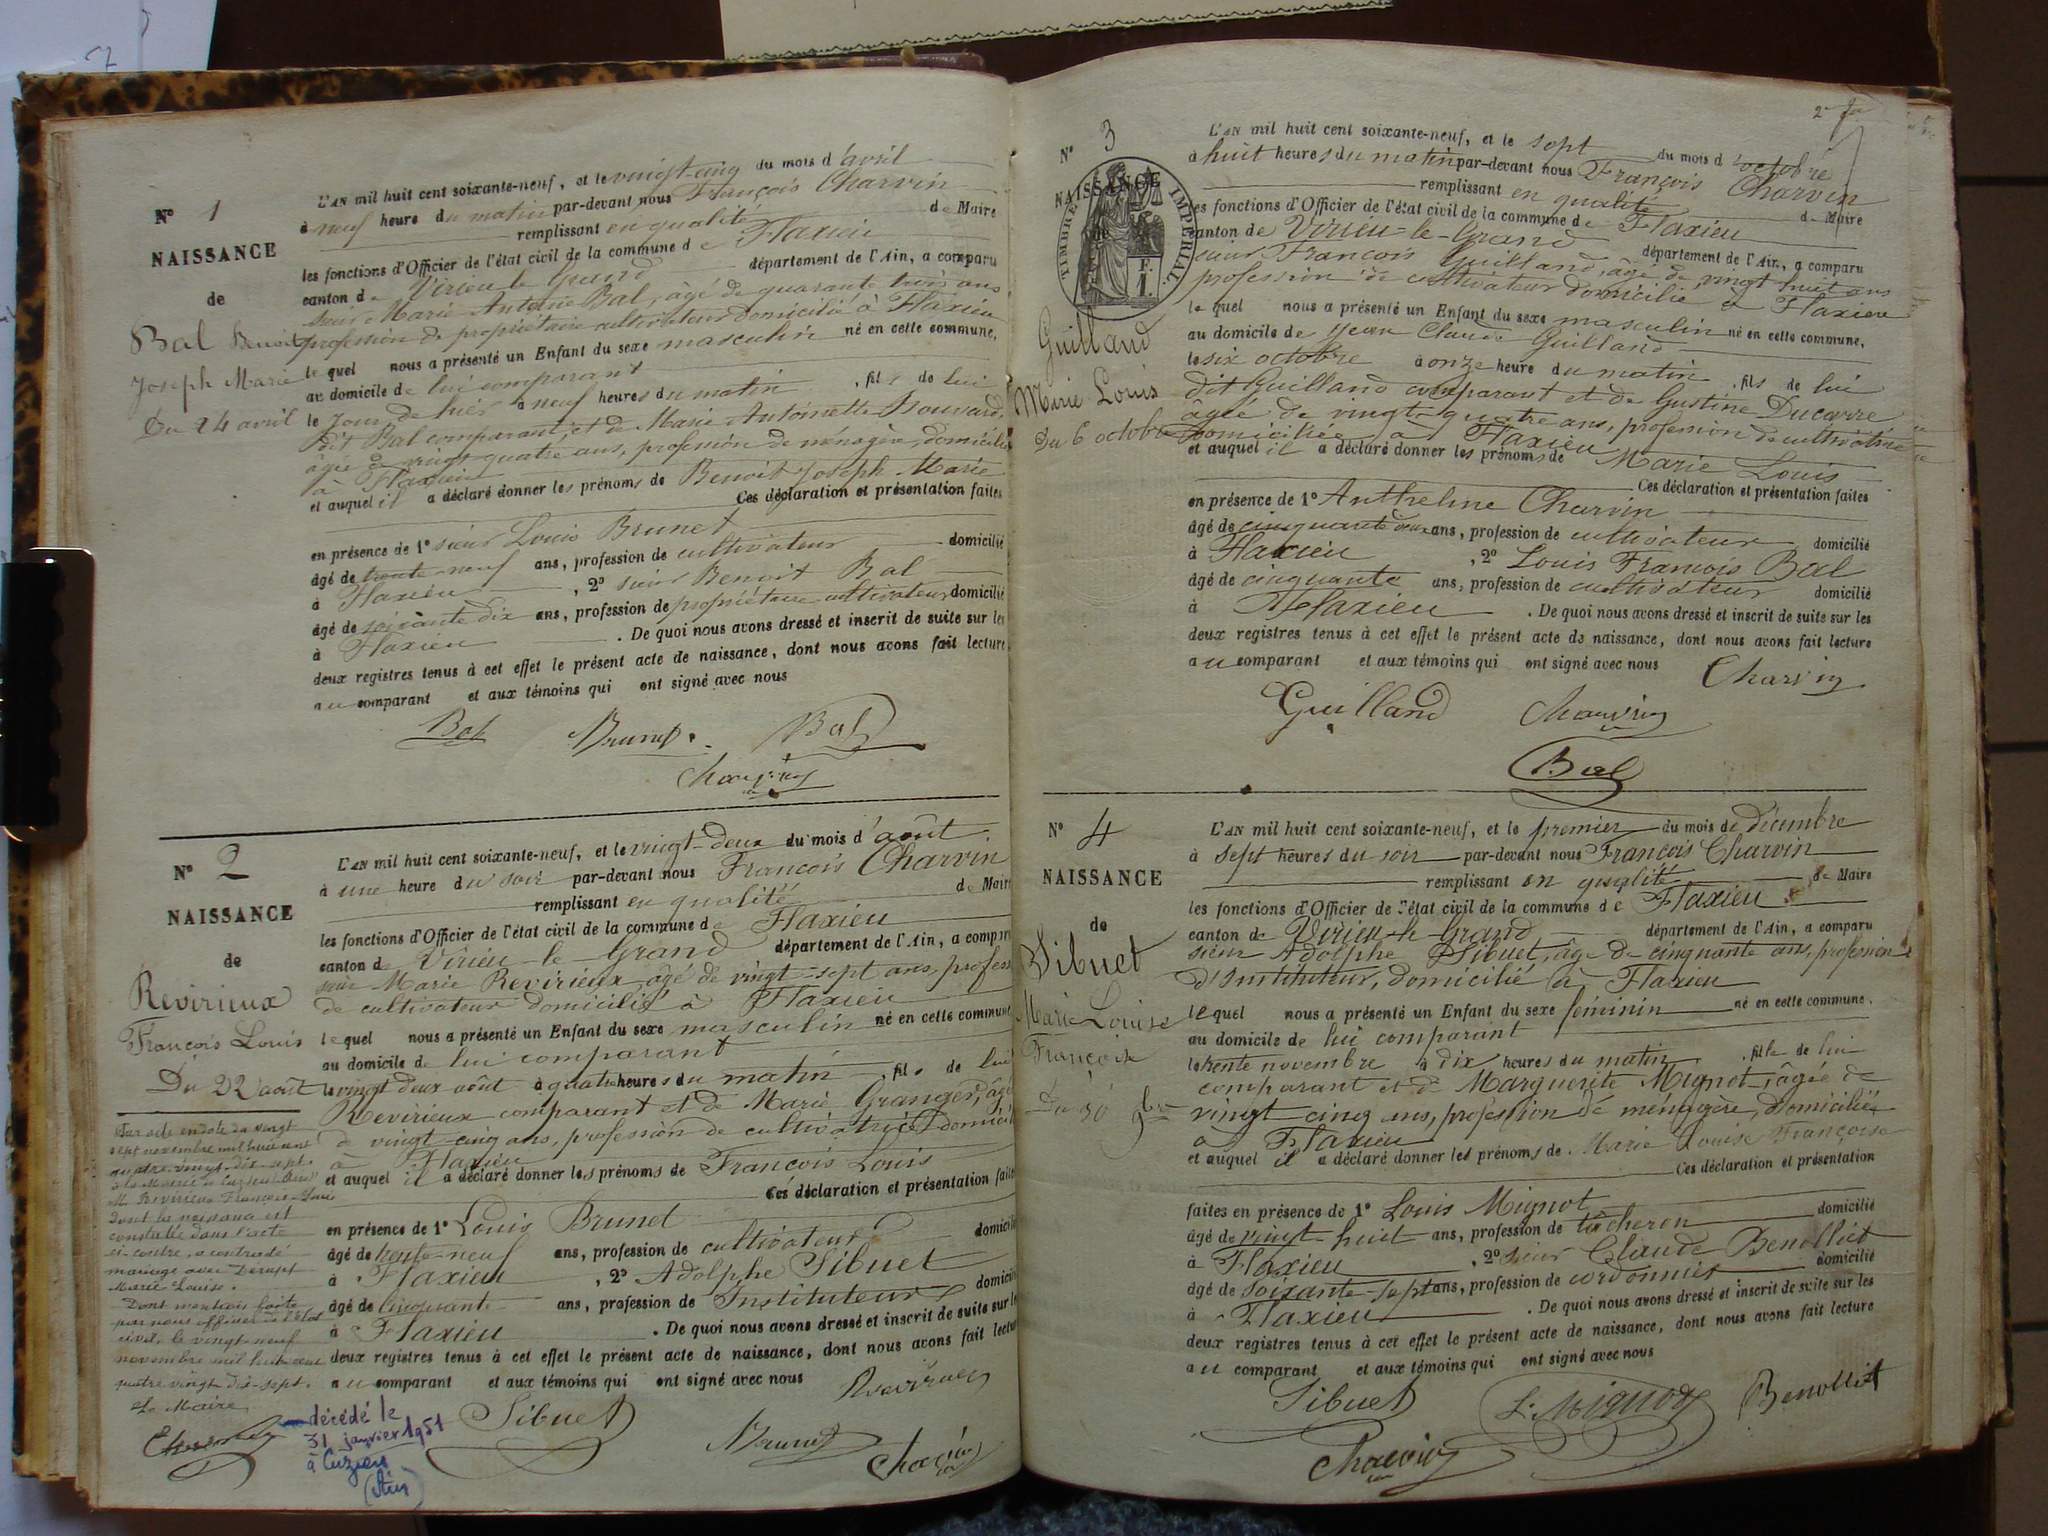 N° 1
NAISSANCE
de
Bal Benoit
Joseph Marie
Du 24 avril
L'AN mil huit cent soixante-neuf, et le vingt-cinq du mois d'avril
à neuf heure du matin par-devant nous François Charvin
remplissant en qualité de Maire
les fonctions d'Officier de l'état civil de la commune de Flaxieu
canton de Virieu le Grand département de l'Ain, a comparu
sieur Marie Antoine Bal, âgé de quarante trois ans
profession de propriétaire cultivateur domicilié à Flaxieu
lequel nous a présenté un Enfant du sexe masculin né en cette commune,
au domicile de lui comparant
le jour de hier à neuf heures du matin, fils de lui
dit Bal comparant, et de Marie Antoinette
agée de vingt quatre ans, profession de ménagère, domiciliée
à Flaxieu
et auquel il a déclaré donner les prénoms de Benoit Joseph Marie
Ces déclaration et présentation faites
en présence de 1° sieur Louis Brunet
âgé de trente-neuf ans, profession de cultivateur domicilié
à Flaxieu, 2° sieur Benoit Bal
âgé de soixante dix ans, profession de propriétaire cultivateur domicilié
à Flaxieu. De quoi nous avons dressé et inscrit de suite sur les
deux registres tenus à cet effet le présent acte de naissance, dont nous avons fait lecture
au comparant et aux témoins qui ont signé avec nous
Bal Brunet Bal
Charvin
N° 2
NAISSANCE
de
Revirieux
François Louis
Du 22 août
L'AN mil huit cent soixante-neuf, et le vingt-deux du mois d'août
à une heure du soir par-devant nous François Charvin
remplissant en qualité de Maire
les fonctions d'Officier de l'état civil de la commune de Flaxieu
canton de Virieu-le-Grand département de l'Ain, a comparu
sieur Marie Revirieux, âgé de vingt-sept ans, profession
de cultivateur domicilié à Flaxieu
lequel nous a présenté un Enfant du sexe masculin né en cette commune
au domicile de lui comparant
le vingt deux août à quatre heures du matin, fils de lui
Revirieux comparant et de Marie Granger, âgée
de vingt-cinq ans, profession de cultivatrice domiciliée
à Flaxieu
et auquel il a déclaré donner les prénoms de François Louis
Ces déclaration et présentation faites
en présence de 1° Louis Brunet
âgé de trente-neuf ans, profession de cultivateur domicilié
à Flaxieu, 2° Adolphe Sibuet
âgé de cinquante ans, profession de Instituteur domicilié
à Flaxieu. De quoi nous avons dressé et inscrit de suite sur les
deux registres tenus à cet effet le présent acte de naissance, dont nous avons fait lecture
au comparant et aux témoins qui ont signé avec nous Revirieux
Sibuet Brunet Charvin
Par acte en date du vingt
sept novembre mil huit cent
quatre-vingt-dix-sept
à la Mairie de Cuzieu (Ain)
M. Revirieux François-Louis
dont la naissance est
constatée dans l'acte
ci-contre, a contracté
mariage avec
Marie Louise.
Dont mention faite
par nous officier de l'état
civil, le vingt-neuf
novembre mil huit cent
quatre vingt dix-sept.
Le Maire
décédé le
31 janvier 1951
à Cuzieu
(Ain)
2e
N° 3
NAISSANCE
de
TIMBRE IMPÉRIAL
Guilland
Marie Louis
Du 6 octobre
L'AN mil huit cent soixante-neuf, et le sept du mois d'octobre
à huit heures du matin par-devant nous François Charvin
remplissant en qualité de Maire
les fonctions d'Officier de l'état civil de la commune de Flaxieu
canton de Virieu-le-Grand département de l'Ain, a comparu
sieur François Guilland, âgé de vingt huit ans
profession de cultivateur domicilié à Flaxieu
lequel nous a présenté un Enfant du sexe masculin né en cette commune,
au domicile de Jean Claude Guilland
le six octobre à onze heure du matin, fils de lui
dit Guilland comparant et de Gustine Ducarre
âgée de vingt-quatre ans, profession de cultivatrice
domiciliée à Flaxieu
et auquel il a déclaré donner les prénoms de Marie Louis
Ces déclaration et présentation faites
en présence de 1° Anthelme Charvin
âgé de cinquante deux ans, profession de cultivateur domicilié
à Flaxieu, 2° Louis François Bal
âgé de cinquante ans, profession de cultivateur domicilié
à Flaxieu. De quoi nous avons dressé et inscrit de suite sur les
deux registres tenus à cet effet le présent acte de naissance, dont nous avons fait lecture
au comparant et aux témoins qui ont signé avec nous Charvin
Guilland Charvin
Bal
N° 4
NAISSANCE
de
Sibuet
Marie Louise
Françoise
Du 30 9bre
L'AN mil huit cent soixante-neuf, et le premier du mois de décembre
à sept heures du soir par-devant nous François Charvin
remplissant en qualité de Maire
les fonctions d'Officier de l'état civil de la commune de Flaxieu
canton de Virieu-le-Grand département de l'Ain, a comparu
sieur Adolphe Sibuet, âgé de cinquante ans, profession
d'Instituteur, domicilié à Flaxieu
lequel nous a présenté un Enfant du sexe féminin né en cette commune,
au domicile de lui comparant
le trente novembre à dix heures du matin, fille de lui
comparant et de Marguerite Mignot, âgée de
vingt cinq ans, profession de ménagère, domiciliée
à Flaxieu
et auquel il a déclaré donner les prénoms de Marie Louise Françoise
Ces déclaration et présentation
faites en présence de 1° Louis Mignot
âgé de vingt-huit ans, profession de tâcheron domicilié
à Flaxieu, 2° sieur Claude Benollit
âgé de soixante-sept ans, profession de cordonnier domicilié
à Flaxieu. De quoi nous avons dressé et inscrit de suite sur les
deux registres tenus à cet effet le présent acte de naissance, dont nous avons fait lecture
au comparant et aux témoins qui ont signé avec nous
Sibuet L. Mignot Benollit
Charvin